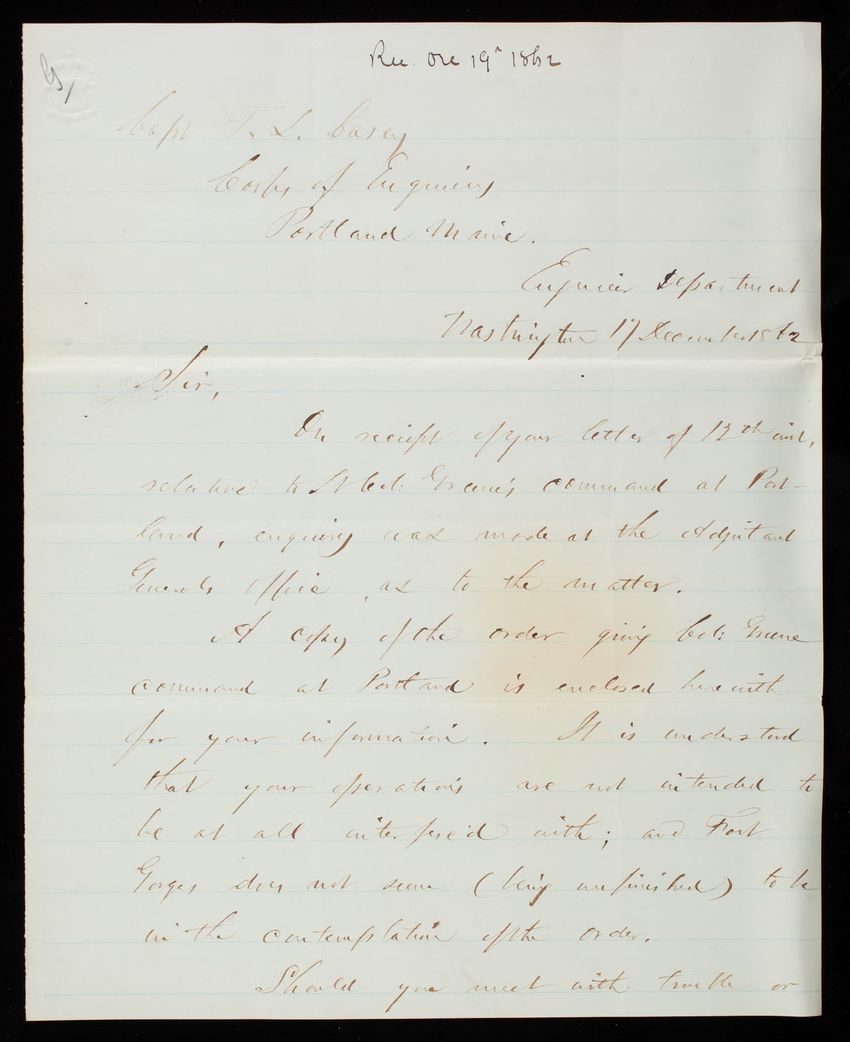 Rec. Dec 19" 1862
Capt T. L. Casey
Corps of Engineers
Portland Maine.
Engineer Department
Washington 17 December 1862
Sir,
On receipt of your letter of 12th inst,
relative to Lt Col: Greene's command at Port-
land, enquiry was made at the Adjutant
Generals Office, as to the matter.
A copy of the order giving Col: Greene
command at Portland is enclosed herewith
for your information. It is understood
that your operations are not intended to
be at all interfered with; and Fort
Gorges does not seem (being unfinished) to be
in the contemplation of the order.
Should you meet with trouble or